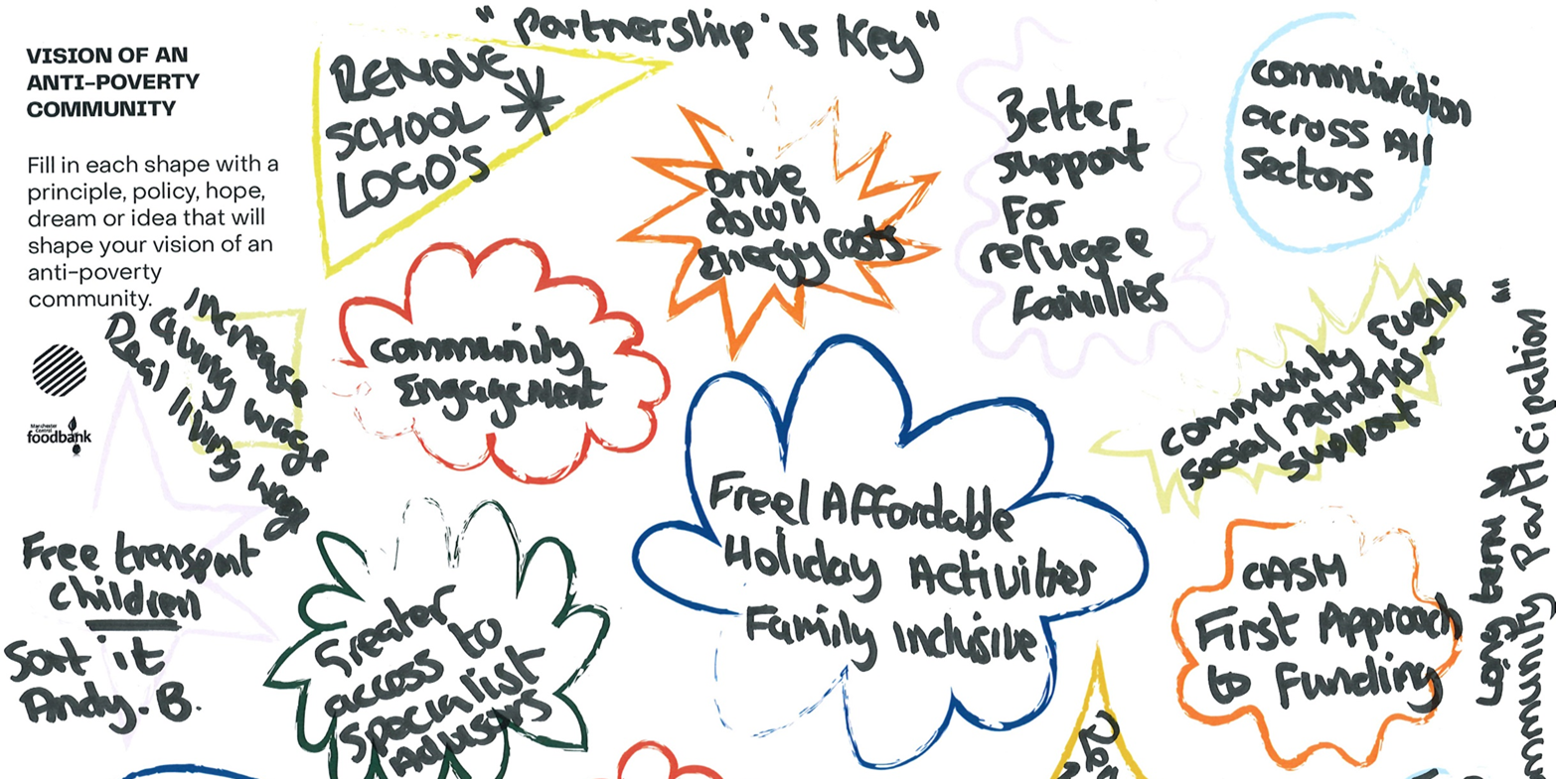 VISION OF AN
ANTI-POVERTY
COMMUNITY
Fill in each shape with a
principle, policy, hope,
dream or idea that will
shape your vision of an
anti-poverty
community.
Manchester
Central
foodbank
"Partnership is Key"
REMOVE
SCHOOL
LOGO'S
Drive
down
Energy costs
Better
support
For
refugee
Families
communication
across All
Sectors
Increase
Living wage
Real living wage
community
Engagement
community Events
social networks +
support
Free transport
Children
Sort it
Andy. B.
Greater
access to
specialist
Advisors
Free/Affordable
Holiday Activities
Family inclusive
CASH
First Approach
to Funding
Long term &
ommunity Participation "